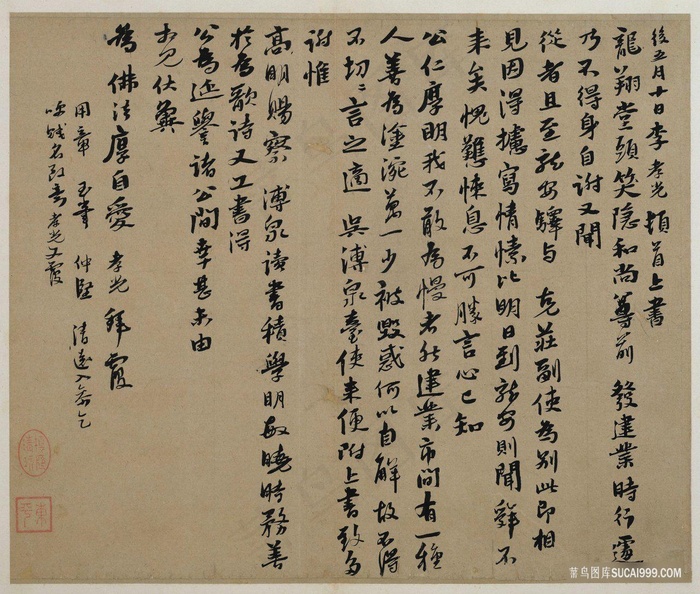 後五月十日李孝光頓首上書
龍翔堂頭笑隱和尚尊前 發建業時行遽
乃不得身自謝又聞
從者且至龍安驛与 克莊副使為別此即相
見因得攄寫情愫比明日到龍安則聞舜不
来矣愧難悚息不可勝言心已知
公仁厚明我不敢為慢者然建業市間有一種
人善為塗涴萬一少被毀惑何以自解故不得
不切々言之適 吳溥泉臺使来便附上書致多
謝惟
高明賜察 溥泉讀書積學明敏曉時務善
於為歌詩又工書得
公為延譽諸公間幸甚未由
相見伏冀
為佛法厚自愛 孝光 拜覆
用章 仲堅 清遠
孝光又覆
菜鸟图库SUCAI999.COM